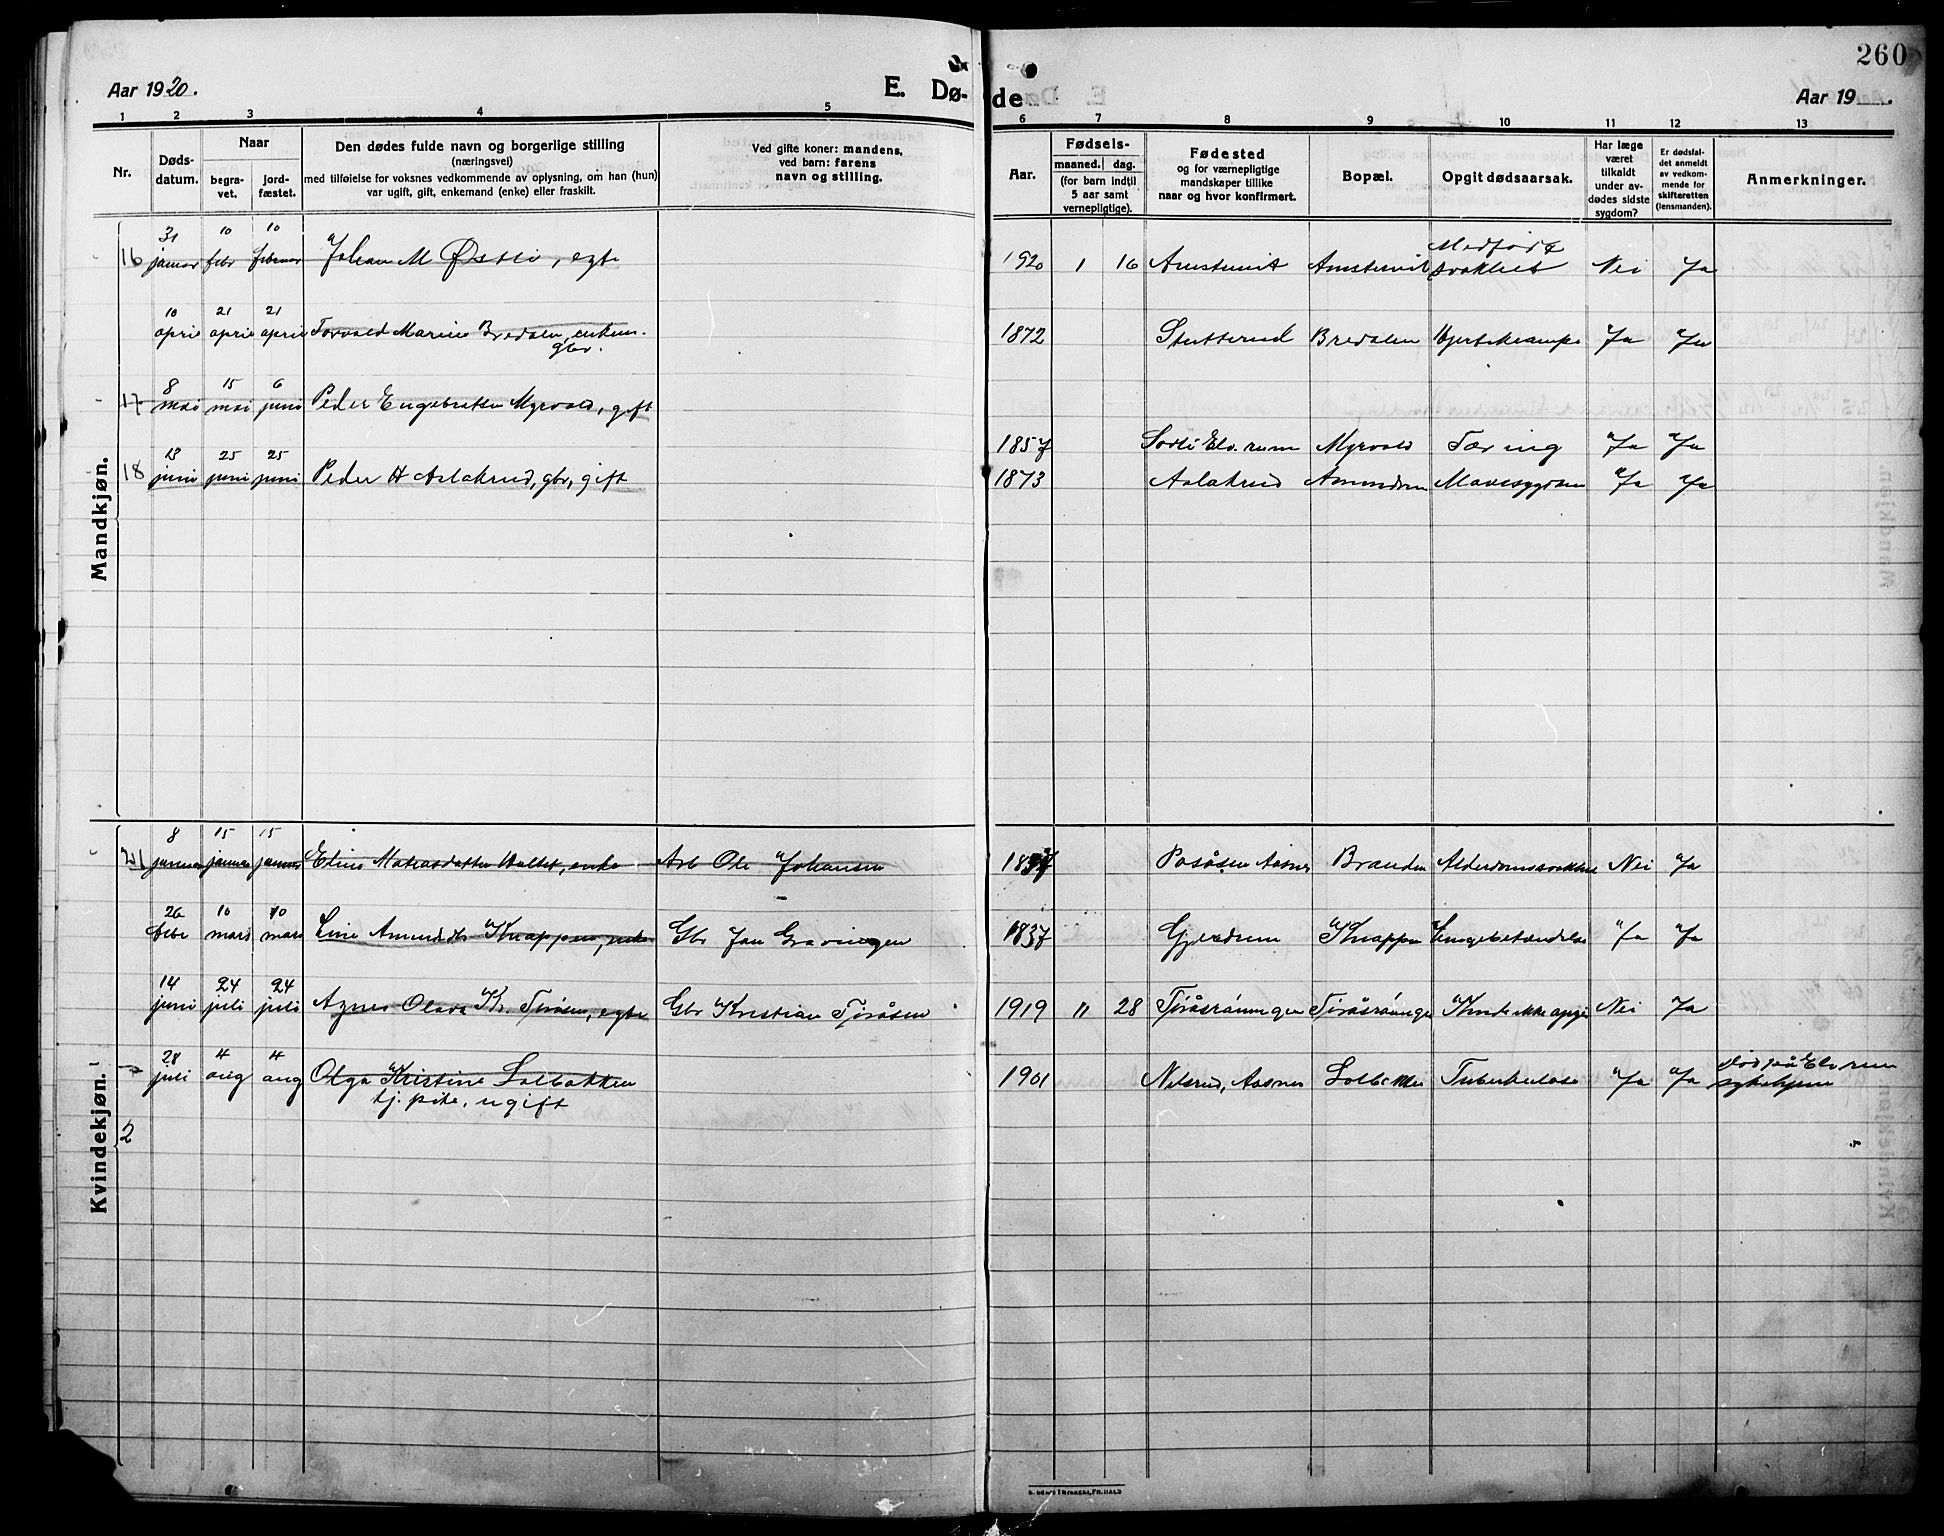 260
Aar 1920.
E. Dø-
de
Aar 19 .
1 2 3 4 5 6 7 8 9 10 11 12 13
Nr.
Døds-
datum.
Naar
begra-
vet.
jord-
fæstet.
Den dødes fulde navn og borgerlige stilling
(næringsvei)
med tilføielse for voksnes vedkommende av oplysning, om han (hun)
var ugift, gift, enkemand (enke) eller fraskilt.
Ved gifte koner: mandens,
ved barn: farens
navn og stilling.
Aar.
Fødsels-
maaned. dag.
(for barn indtil
5 aar samt
vernepligtige).
Fødested
og for værnepligtige
mandskaper tillike
naar og hvor konfirmert.
Bopæl.
Opgit dødsaarsak.
Har læge
været
tilkaldt
under av-
dødes sidste
sygdom?
Er dødsfal-
det anmeldt
av vedkom-
mende for
skifteretten
(lensmanden).
Anmerkninger.
Mandkjøn.
31 10 10 Medfødt
16 januar febr februar Johan M Østli, egte 1920 1 16 Amstervit Amstervit svakhet Nei Ja
10 21 21
april april april Torvald Marius Bredalen, enkem. 1872 Stutterud Bredalen Hjertekrampe Ja Ja
gbr.
8 15 6
17 mai mai juni Peder Engebretsen Myrvold, gift
1857 Sætli Elverum Myrvold Tæring Ja Ja
13 25 25
18 juni juni juni Peder H Aslakrud, gbr, gift 1873 Aslakrud Amundsen Mavesygdom Ja Ja
Kvindekjøn.
8 15 15
21 januar januar januar Eline Matiasdatter Haltet, enke Arb Ole Johansen Aasnes Branden Alderdomssvakhet Nei Ja
26 10 10
febr mars mars Line Amundsdtr Knappen, enke Gbr Jan Gravingen 1837 Gjerdrum Knappen Lungebetændelse Ja Ja
14 24 24
juni juli juli Agnes Olava Kr. Tøråsen, egte Gbr Kristian Tøråsen 1919 11 28 Nei Ja
28 4 4 Død på Elverum
juli aug aug Olga Kristine Solbakken 1901 Aasnes Solbakken Tuberkulose Ja Ja sykehjem
tj. pike, ugift
2